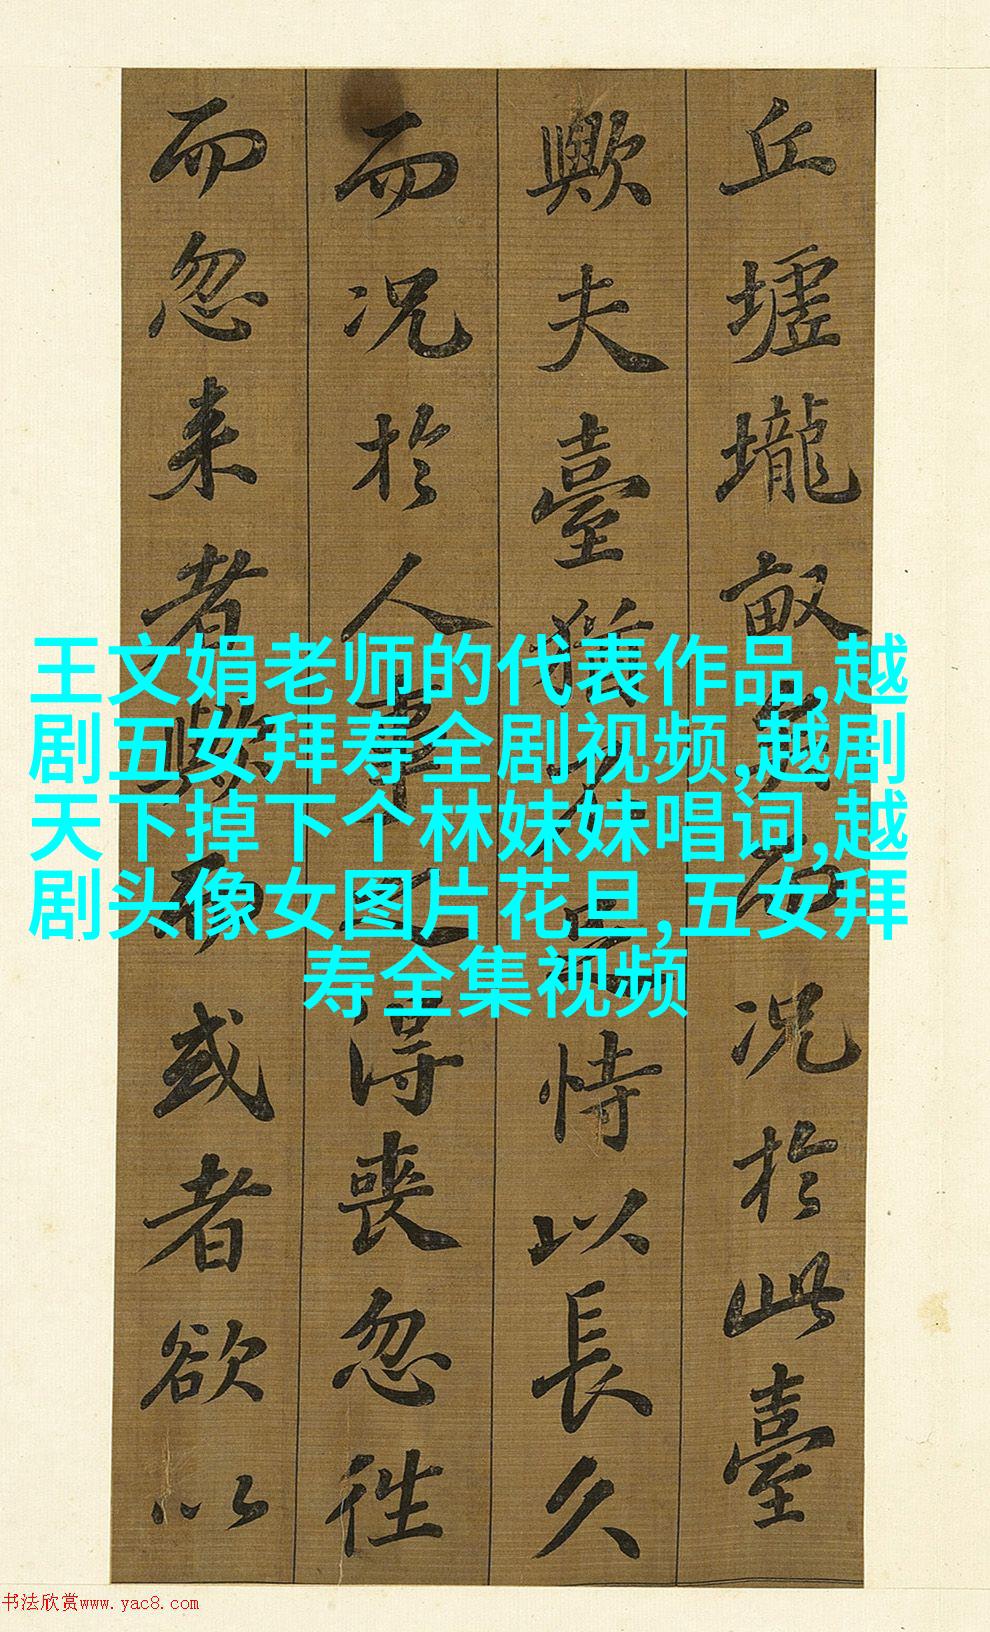 丘墟壠畝矣而况於此臺
歟夫臺猶不足恃以長久
而况於人事之得喪忽徃
而忽来者歟而或者欲以
王文娟老师的代表作品,越
剧五女拜寿全剧视频,越剧
天下掉下个林妹妹唱词,越
剧头像女图片花旦,五女拜
寿全集视频
书法欣赏www.yac8.com